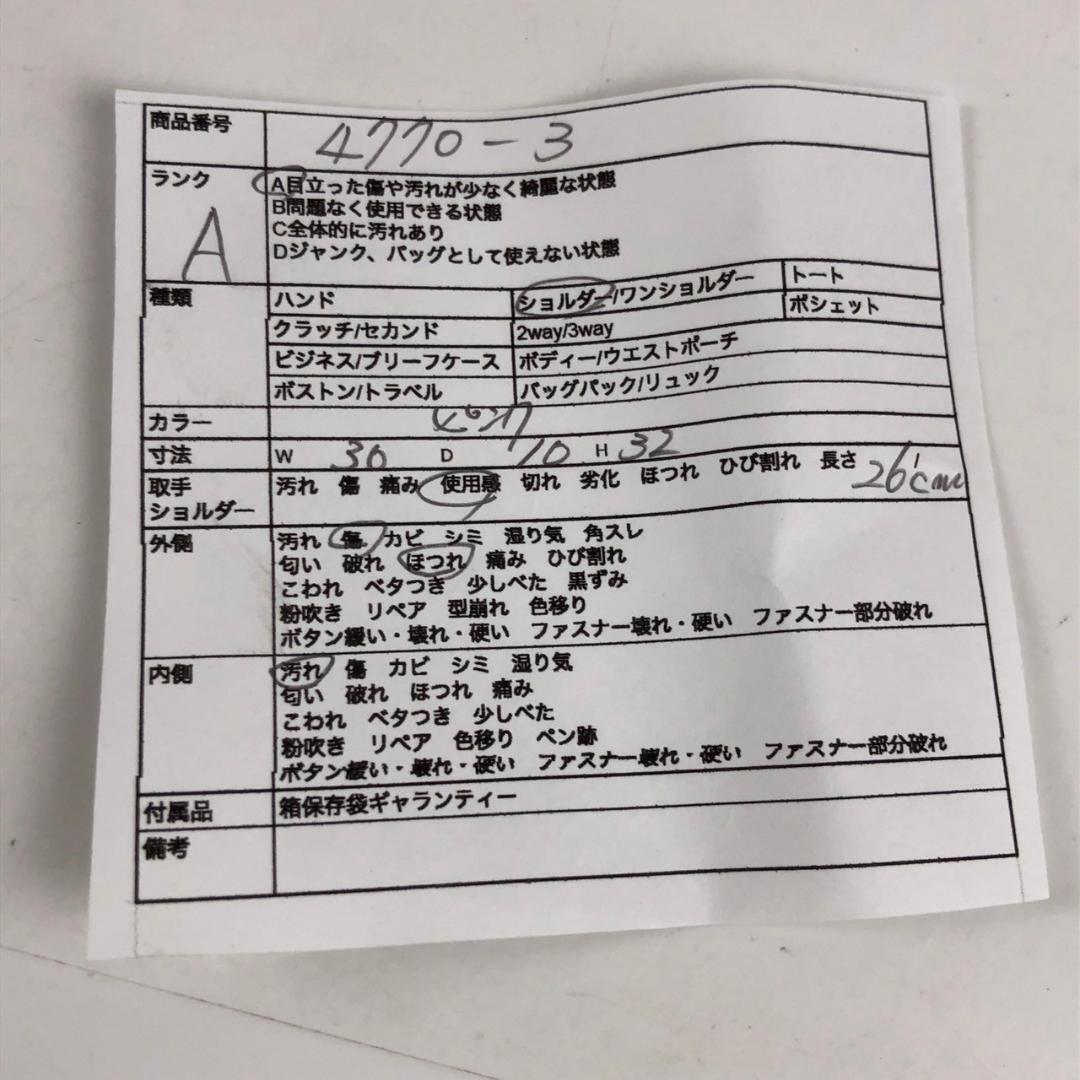 商品番号 4770-3
ランク A
A目立った傷や汚れが少なく綺麗な状態
B問題なく使用できる状態
C全体的に汚れあり
Dジャンク、バッグとして使えない状態
種類 ハンド ショルダー/ワンショルダー トート
クラッチ/セカンド 2way/3way ポシェット
ビジネス/ブリーフケース ボディー/ウエストポーチ
ボストン/トラベル バッグパック/リュック
カラー ピンク
寸法 W 30 D 10 H 32
取手 汚れ 傷 痛み 使用感 切れ 劣化 ほつれ ひび割れ 長さ 26cm
ショルダー
外側 汚れ 傷 カビ シミ 湿り気 角スレ
匂い 破れ ほつれ 痛み ひび割れ
こわれ ベタつき 少しべた 黒ずみ
粉吹き リペア 型崩れ 色移り
ボタン緩い・壊れ・硬い ファスナー壊れ・硬い ファスナー部分破れ
内側 汚れ 傷 カビ シミ 湿り気
匂い 破れ ほつれ 痛み
こわれ ベタつき 少しべた
粉吹き リペア 色移り ペン跡
ボタン緩い・壊れ・硬い ファスナー壊れ・硬い ファスナー部分破れ
付属品 箱保存袋ギャランティー
備考